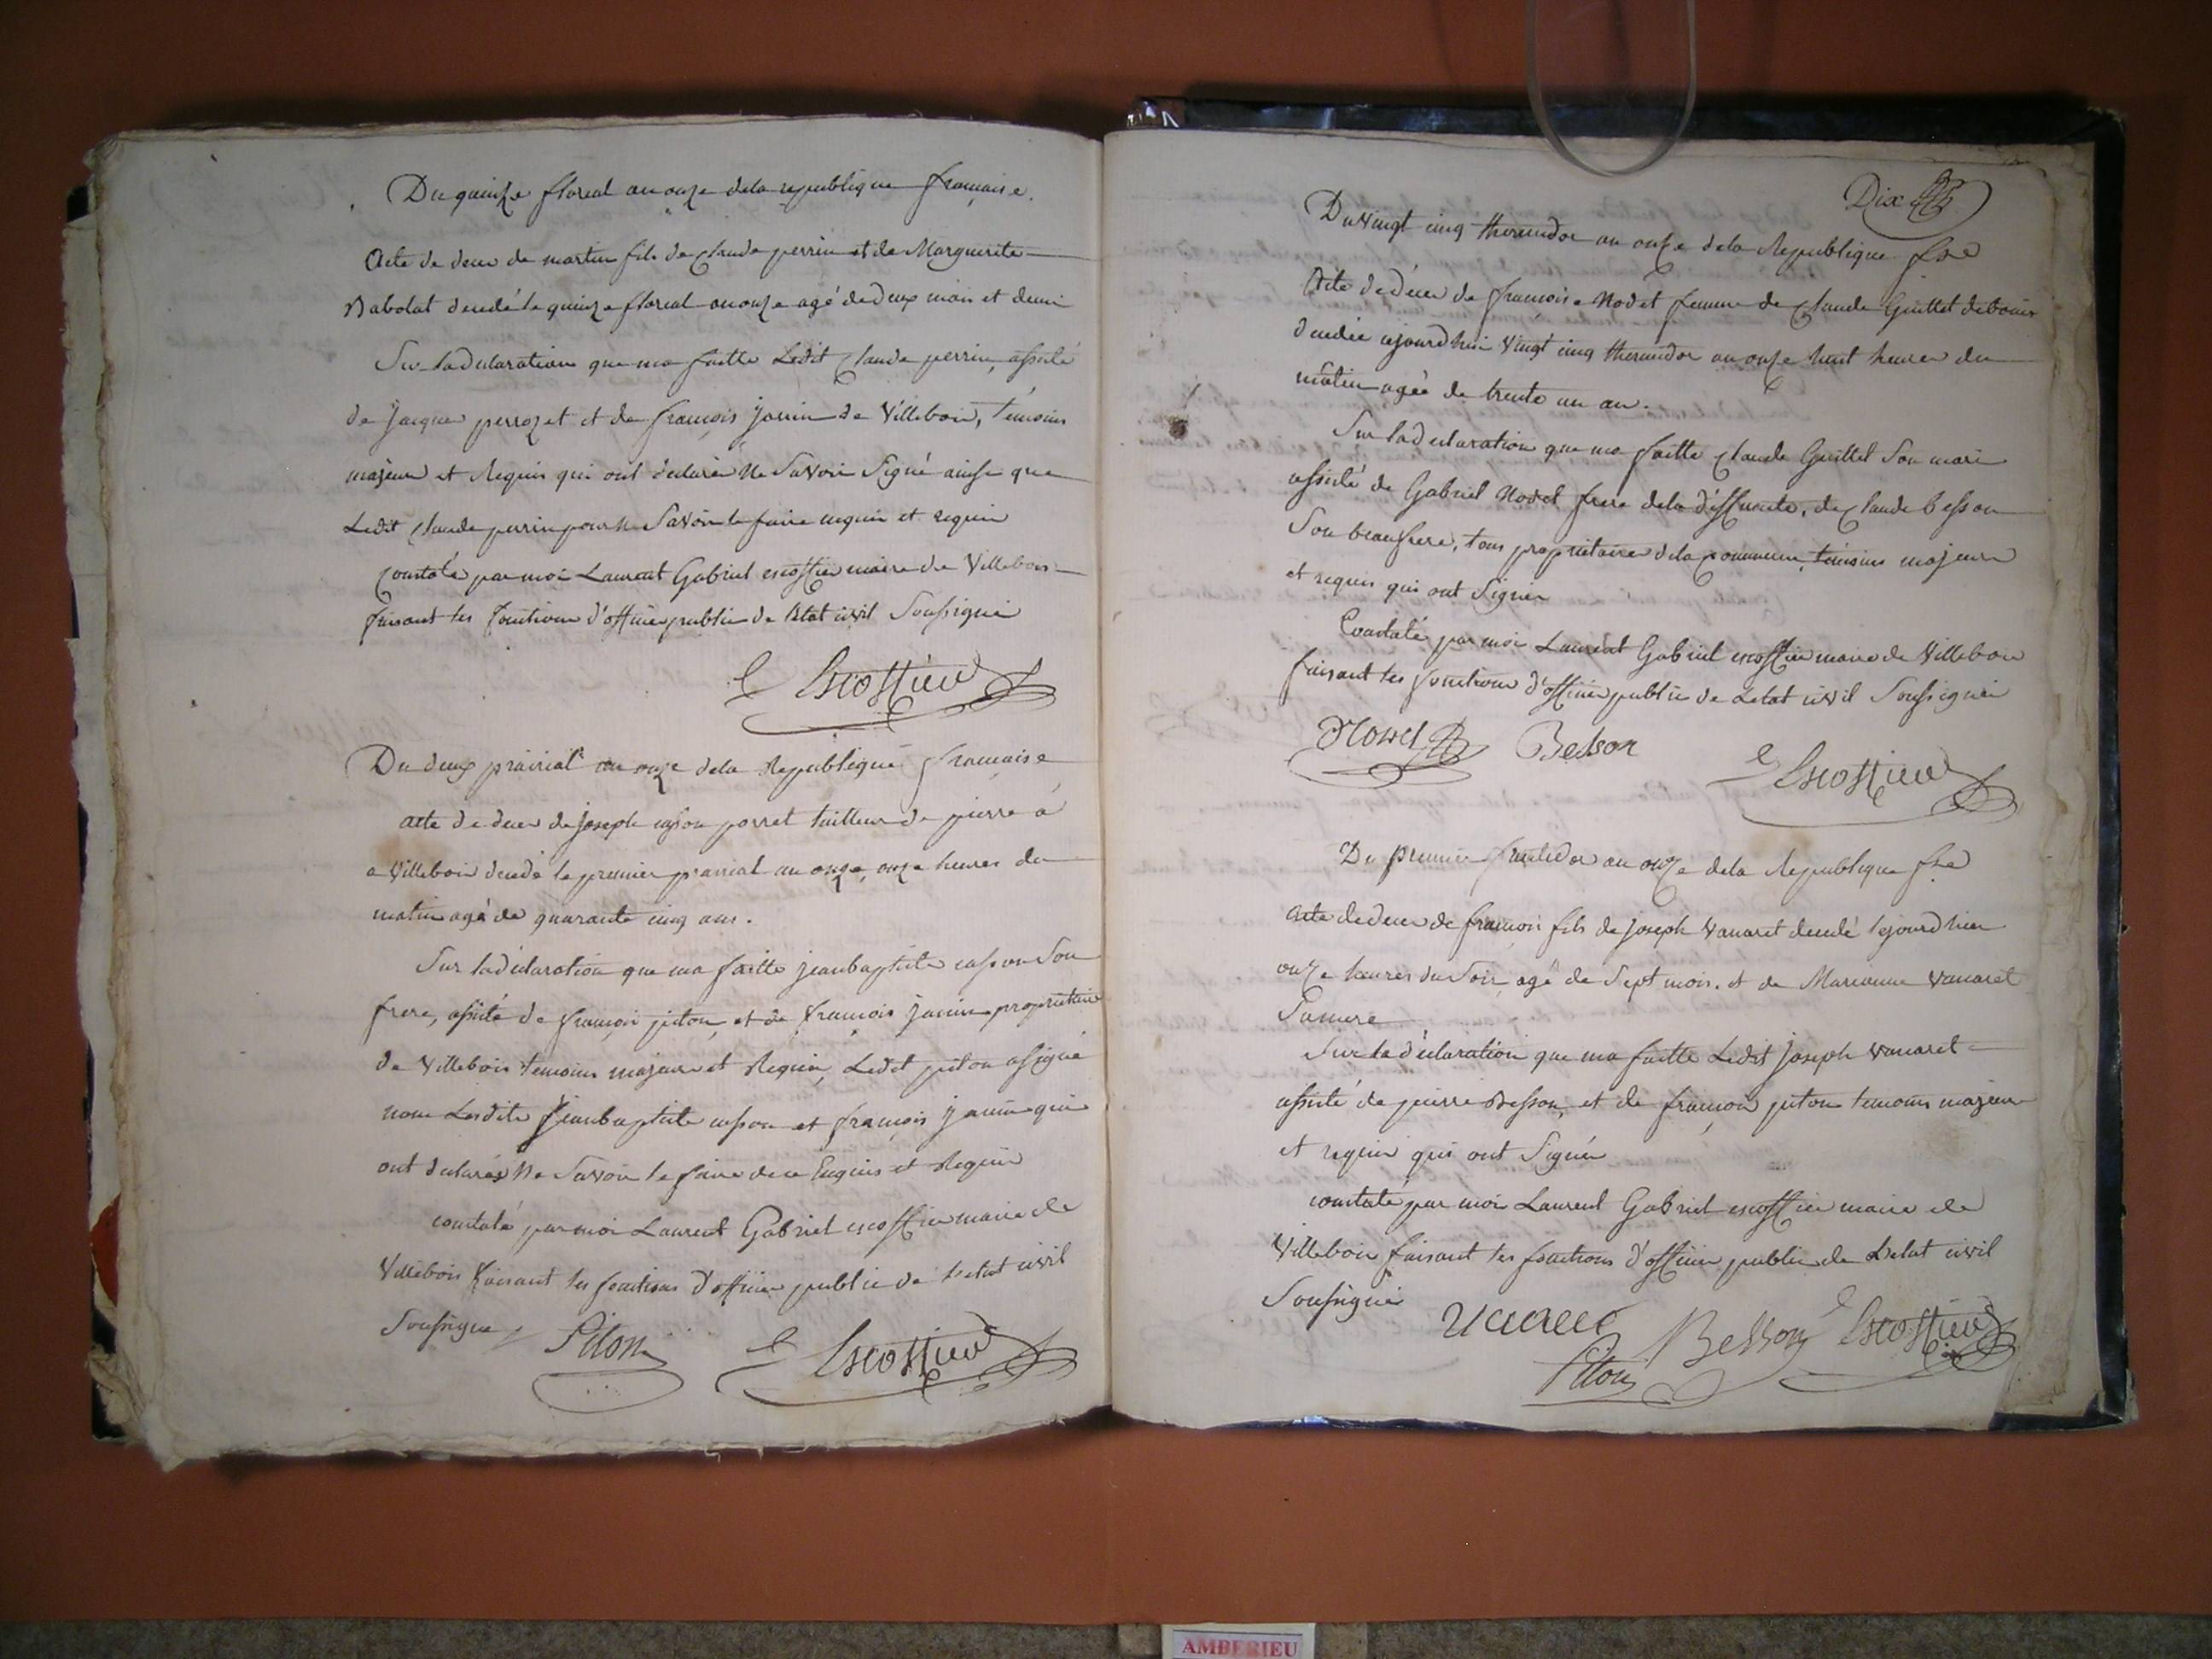 Du quinze floreal an onze dela republique francaise.
Acte de deces de martin fils de Claude perrin et de Marguerite
Babolat decedé le quinze floreal an onze agé de deux mois et demi
Sur la declaration que ma faitte Ledit Claude perrin, assisté
de Jacque perrozet et de francois janin de Villebois, temoins
majeurs et Requis qui ont declaré ne Savoir Signé ainsse que
Ledit Claude perrin pour ne Savoir le faire enquis et requis
Constaté par moi Laurent Gabriel escoffier maire de Villebois
faisant les fonctions d'officier public de letat civil Soussigné
Escoffier
Du deux prairial an onze dela Republique francaise
acte de deces de Joseph casson porret tailleur de pierre á
a Villebois decedé le premier prairial an onze, onze heures du
matin agé de quarante cinq ans.
Sur la déclaration que ma faitte jeanbaptiste casson Son
frere, assisté de francois piton, et de francois janin proprietaire
de Villebois temoins majeurs et Requis, Ledit piton a signé
non Lesdits Jeanbaptiste casson et francois janin qui
ont declarés ne Savoir le faire de ce Enquis et Requis
constaté par moi Laurent Gabriel escoffier maire de
Villebois faisant les fonctions d'officier public de letat civil
Soussigné
Piton
Escoffier
Dix
Du Vingt cinq thermidor an onze dela Republique fse
Acte de déces de francoise Nodet femme de Claude Guittet de bouis
decedée ajourdhui Vingt cinq thermidor an onze huit heures du
matin agée de trente un an.
Sur la declaration que ma faitte Claude Guittet Son mari
assisté de Gabriel Nodet frere dela déffunte, de Claude besson
Son beaufrere, tous proprietaires dela commune, témoins majeurs
et requis qui ont Signés
Constaté par moi Laurent Gabriel escoffier maire de Villebois
faisant les fonctions d'officier public de Letat civil Soussigné
Nodet
Besson
Escoffier
Du premier fructidor an onze dela Republique fse
acte de deces de francois fils de joseph Vanaret decedé lejourdhier
onze heures du Soir, agé de Sept mois. et de Marianne Vanaret
Sa mere
Sur la déclaration que ma faitte Ledit Joseph Vanaret
assisté de pierre Besson, et de francois piton temoins majeurs
et requis qui ont Signés
constaté par moi Laurent Gabriel escoffier maire de
Villebois faisant les fonctions d'officier public de Letat civil
Soussigné
Besson
Escoffier
Piton
AMBERIEU